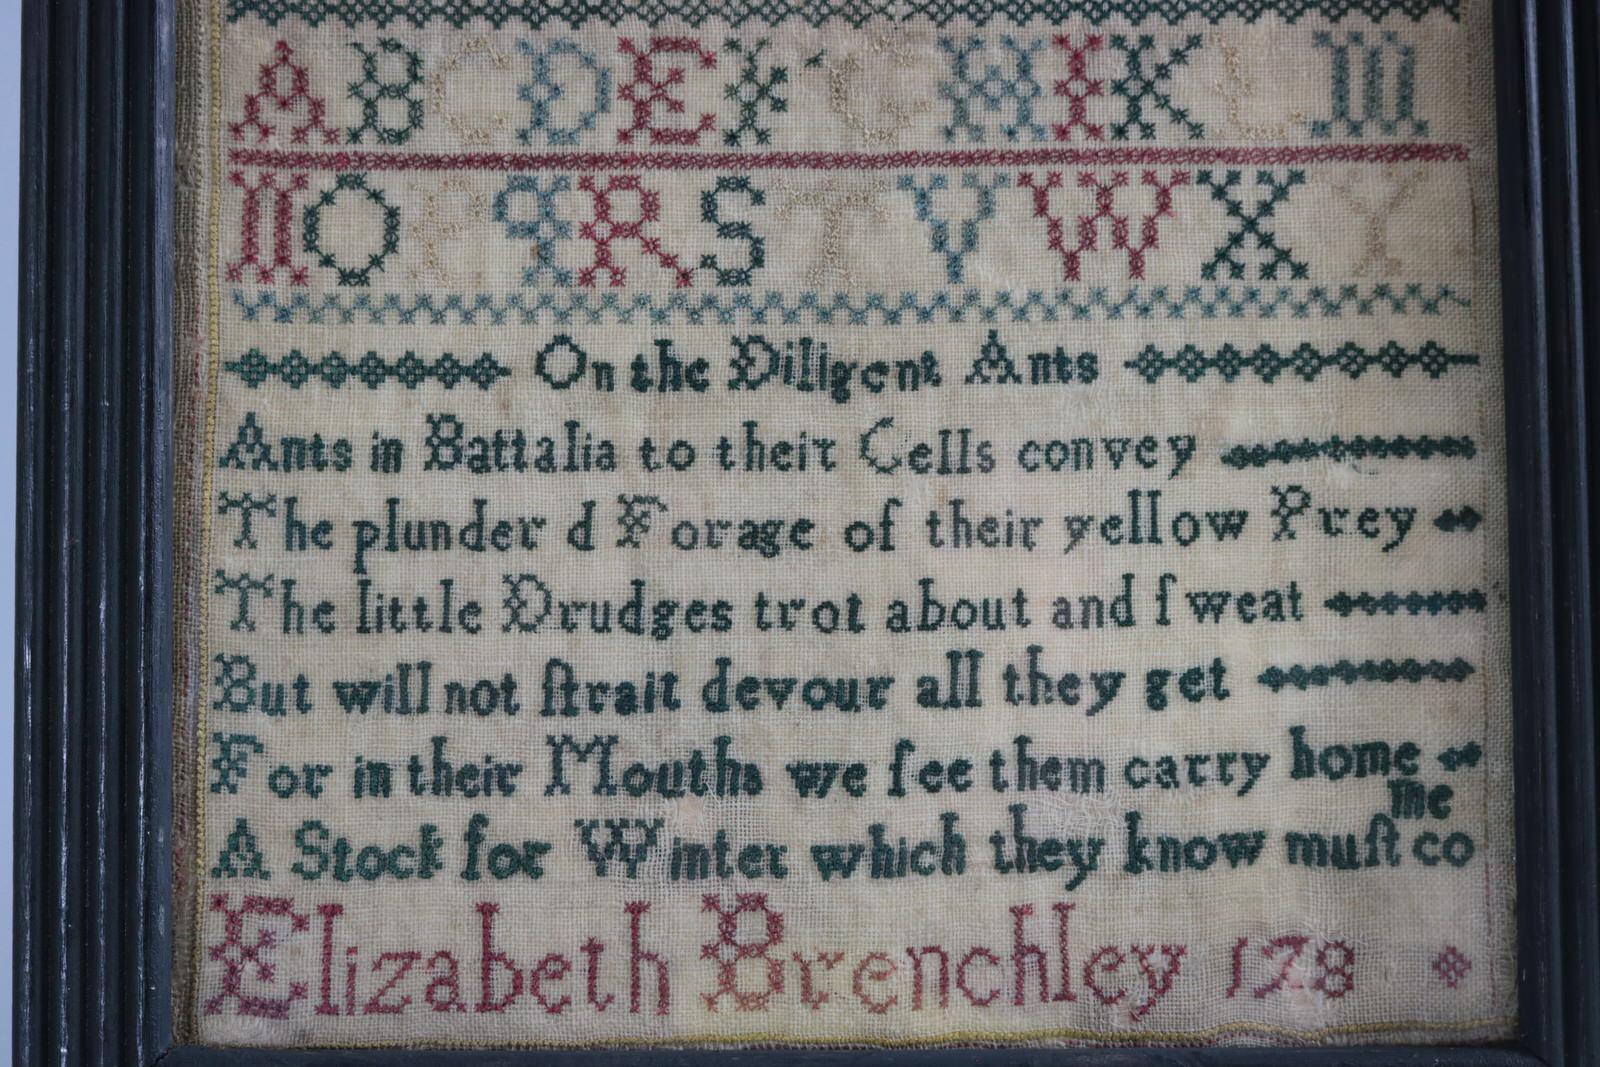 A B C D E F G H I K L M
N O P q R S T V W X Y
On the Diligent Ants
Ants in Battalia to their Cells convey
The plunder d Forage of their yellow Prey
The little Drudges trot about and ſweat
But will not ſtrait devour all they get
For in their Mouths we ſee them carry home
A Stock for Winter which they know muſt co
me
Elizabeth Brenchley 178